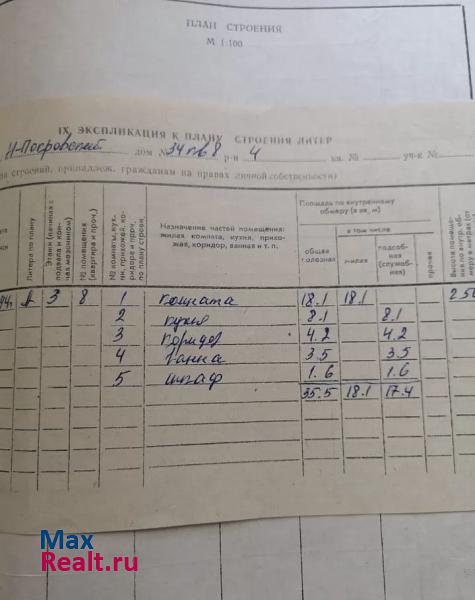 ПЛАН СТРОЕНИЯ
М 1:100
IX. ЭКСПЛИКАЦИЯ К ПЛАНУ СТРОЕНИЯ ЛИТЕР
Н-Покровский дом № 34 кв 8 р-н 4 кв. № уч-к №
строений, принадлеж. гражданам на правах личной собственности)
Литера по плану
Этажи (начиная с подвала и кончая мезонином)
№ помещения (квартира и проч.)
№ комнаты, кухни, прихожей, коридора и проч. по плану строен.
Назначение частей помещения: жилая комната, кухня, прихожая, коридор, ванная и т. п.
Площадь по внутреннему обмеру (в кв. м)
общая полезная
в том числе
жилая
подсобная (служебная)
прочая
А 3 8 1 комната 18.1 18.1
2 кухня 8.1 8.1
3 коридор 4.2 4.2
4 ванна 3.5 3.5
5 шкаф 1.6 1.6
35.5 18.1 17.4
Max
Realt.ru